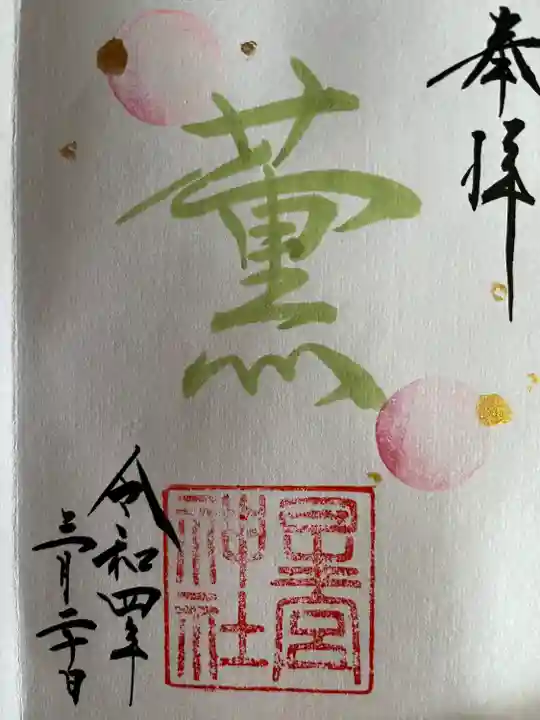 奉拝
薫
星宮
神社
令和四年
三月二十日